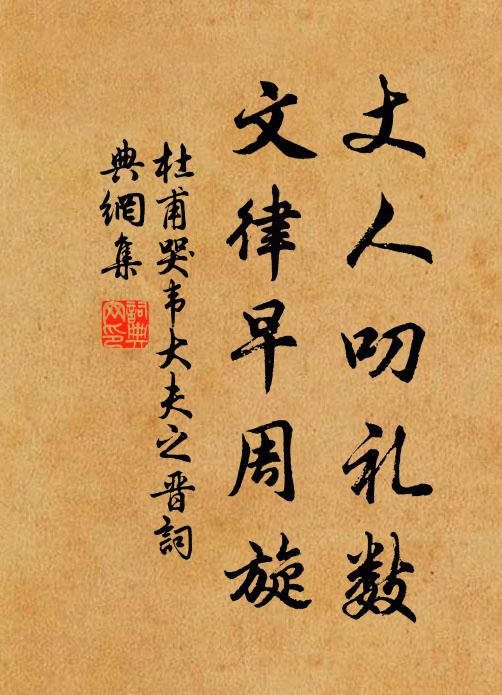 丈人叨礼数
文律早周旋
杜甫哭韦大夫之晋詞
典網集
詞典
网印